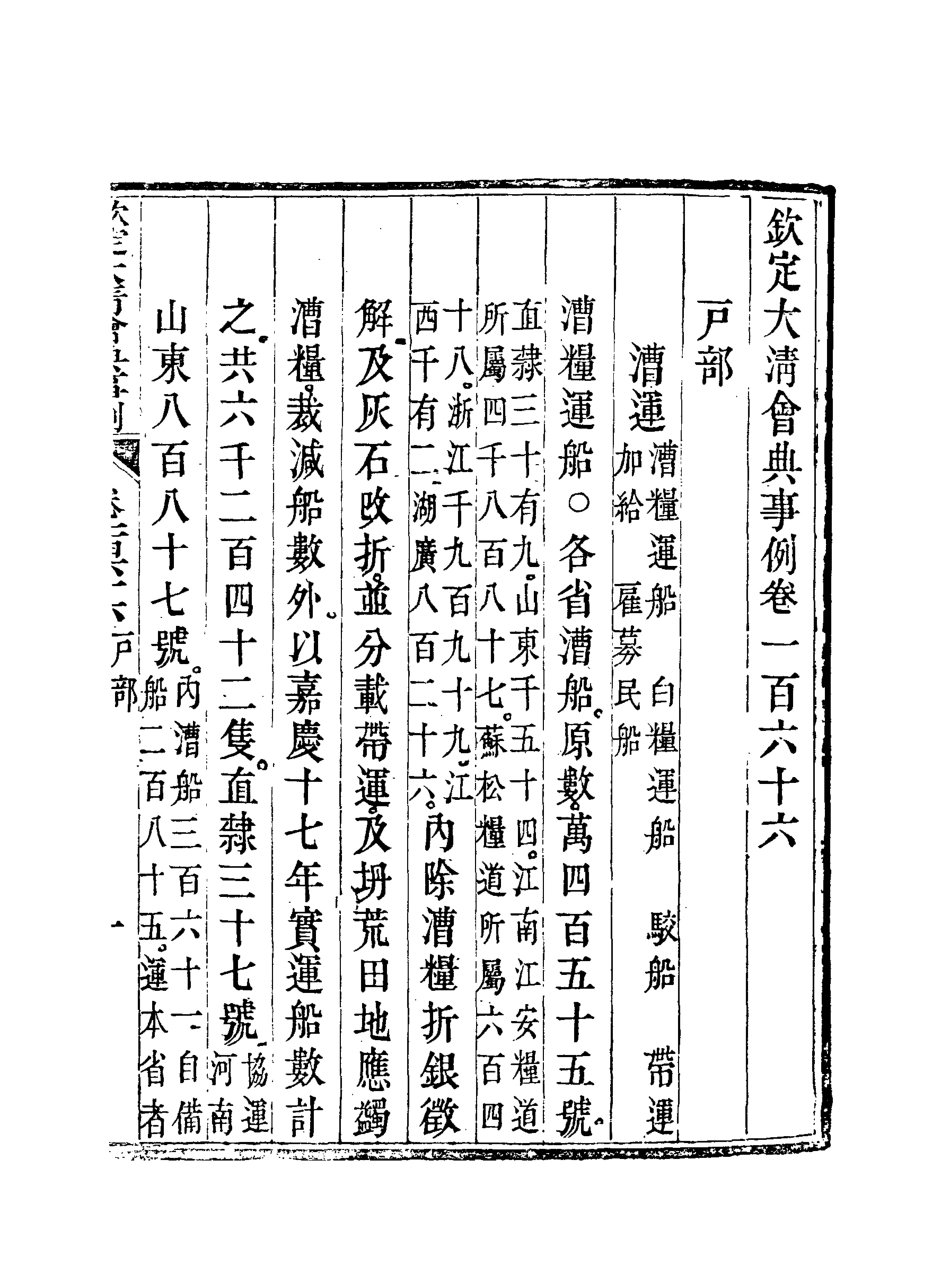 欽定大清會典事例卷一百六十六
戸部
漕運 漕糧運船 白糧運船 駮船 帶運
加給 雇募民船
漕糧運船○各省漕船。原數。萬四百五十五號。
直隸三十有九。山東千五十四。江南江安糧道
所屬四千八百八十七。蘇松糧道所屬六百四
十八。浙江千九百九十九。江
西千有二。湖廣八百二十六。內除漕糧折銀徵
解。及灰石改折。並分載帶運。及坍荒田地應蠲
漕糧。裁減船數外。以嘉慶十七年實運船數計
之。共六千二百四十二隻。直隸三十七號。協運
河南
山東八百八十七號。內漕船三百六十一自備
船二百八十五。運本省者
欽定大清會典事例 卷一百六十六 戸部 一